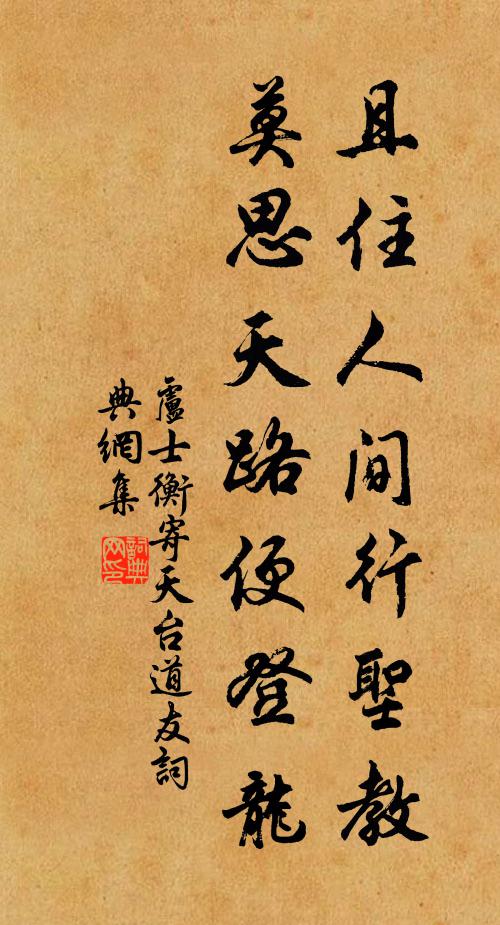 且住人間行聖教
莫思天路便登龍
盧士衡寄天台道友詞
典網集
詞典
网印